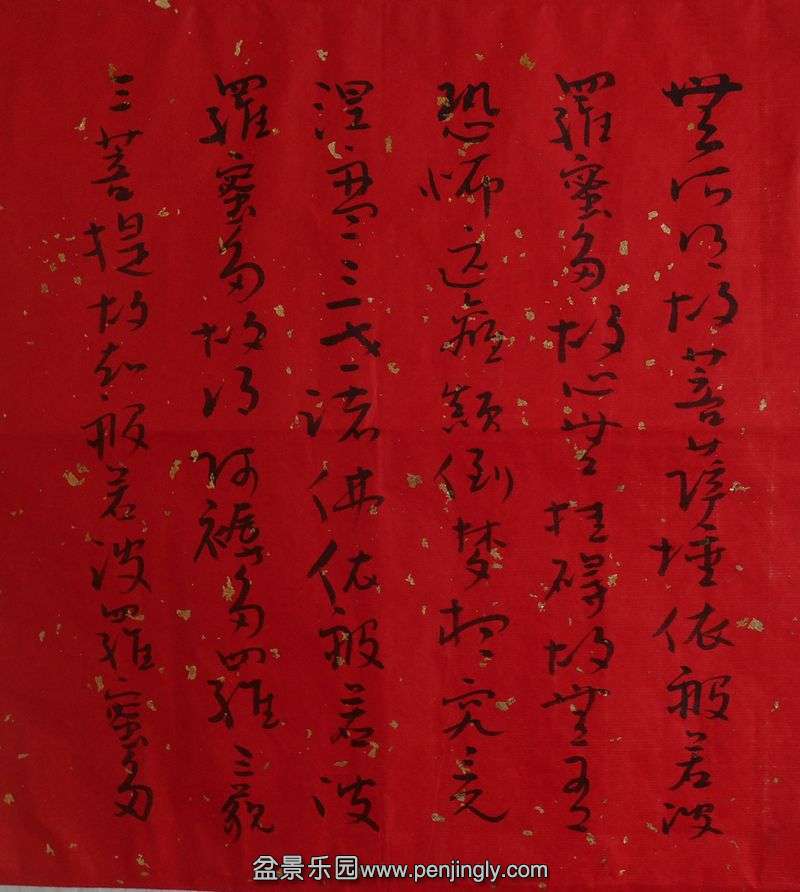 無所得故菩薩埵依般若波
羅蜜多故心無掛礙故無有
恐怖遠離顛倒夢想究竟
涅槃三世諸佛依般若波
羅蜜多故得阿褥多羅三藐
三菩提故知般若波羅蜜多
盆景乐园www.penjingly.com